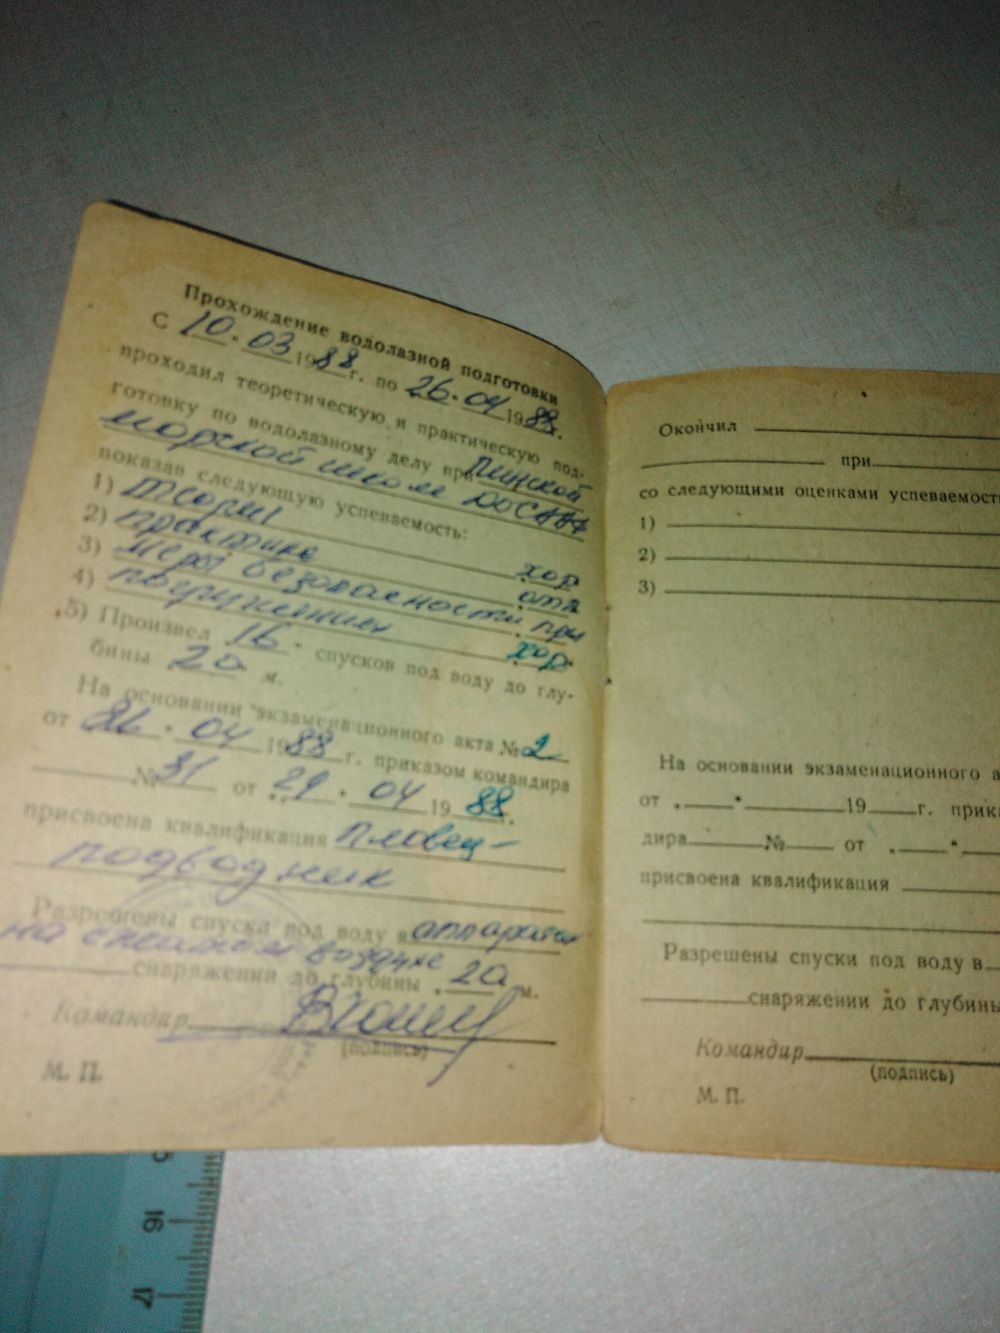 Прохождение водолазной подготовки
С 10. 03 1988 г. по 26. 04 1988.
проходил теоретическую и практическую под-
готовку по водолазному делу при Пинской
морской школе ДОСААФ
показав следующую успеваемость:
1) Теория хор
2) практика отл
3) меры безопасности при
4) погружениях хор.
5) Произвел 16 спусков под воду до глу-
бины 20 м.
На основании экзаменационного акта № 2
от 26. 04 1988 г. приказом командира
№ 31 от 29. 04 1988.
присвоена квалификация пловец-
подводник
Разрешены спуски под воду в аппаратах
на сжатом воздухе
снаряжении до глубины 20 м.
Командир
(подпись)
М. П.
Окончил
при
со следующими оценками успеваемост
1)
2)
3)
На основании экзаменационного а
от 19 г. прика
дира № от
присвоена квалификация
Разрешены спуски под воду в
снаряжении до глубины
Командир
(подпись)
М. П.
16
17